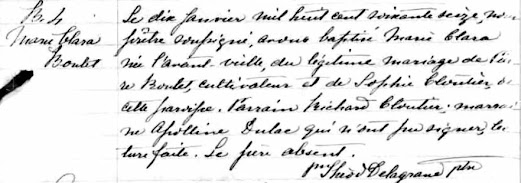 B. 4
Marie Clara
Boulet
Le dix janvier mil huit cent soixante seize, nous
prêtre soussigné, avons baptisé Marie Clara
née l'avant-veille, du légitime mariage de Pier
re Boulet, cultivateur et de Sophie Cloutier, de
cette paroisse. Parrain Richard Cloutier, marrai
ne Apolline Dulac qui n'ont pu signer, lec
ture faite. Le père absent.
Delagrave ptre